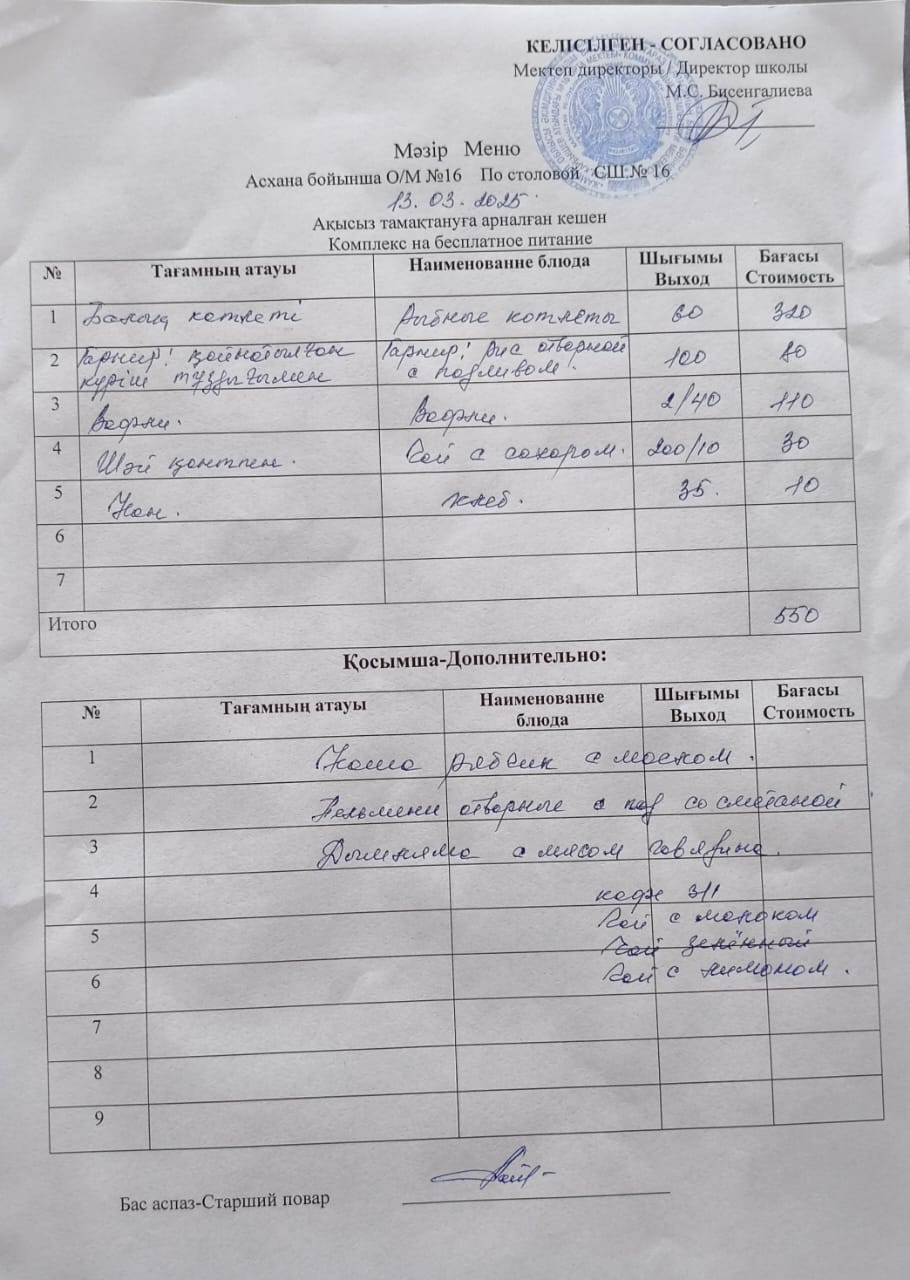 КЕЛІСІЛГЕН - СОГЛАСОВАНО
Мектеп директоры / Директор школы
М.С. Бисенгалиева
Мәзір Меню
Асхана бойынша О/М №16 По столовой СШ № 16
13. 03. 2025
Ақысыз тамақтануға арналған кешен
Комплекс на бесплатное питание
№ Тағамның атауы Наименованне блюда Шығымы Выход Бағасы Стоимость
1 Балық котлеті Рыбные котлеты 60 320
2 Гарнир: қайнатылған күріш тұздығымен Гарнир: рис отварной с подливом. 100 80
3 Вафли. Вафли. 2/40 110
4 Шәй қантпен. Чай с сахаром. 200/10 30
5 Нан. хлеб. 35. 10
6
7
Итого 550
Қосымша-Дополнительно:
№ Тағамның атауы Наименованне блюда Шығымы Выход Бағасы Стоимость
1 Каша с маслом.
2 Пельмени отварные с под со сметаной
3 Дымляма с мясом говядина.
4 кофе 3/1
Чай с молоком
5 Чай зелённый
6 Чай с лимоном.
7
8
9
Бас аспаз-Старший повар